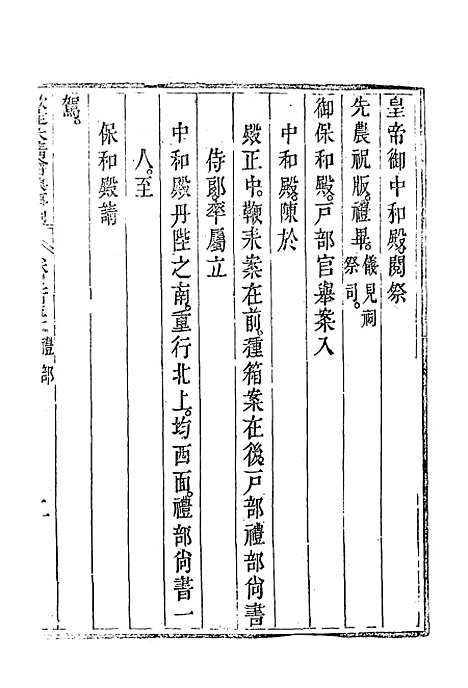 皇帝御中和殿。閱祭
先農祝版。禮畢。儀見祠祭司。
御保和殿。戶部官舉案入
中和殿。陳於
殿正中。鞭耒案在前。種箱案在後。戶部禮部尚書
侍郎。率屬立
中和殿丹陛之南。重行北上。均西面。禮部尚書一
人。至
保和殿請
駕。
禮部